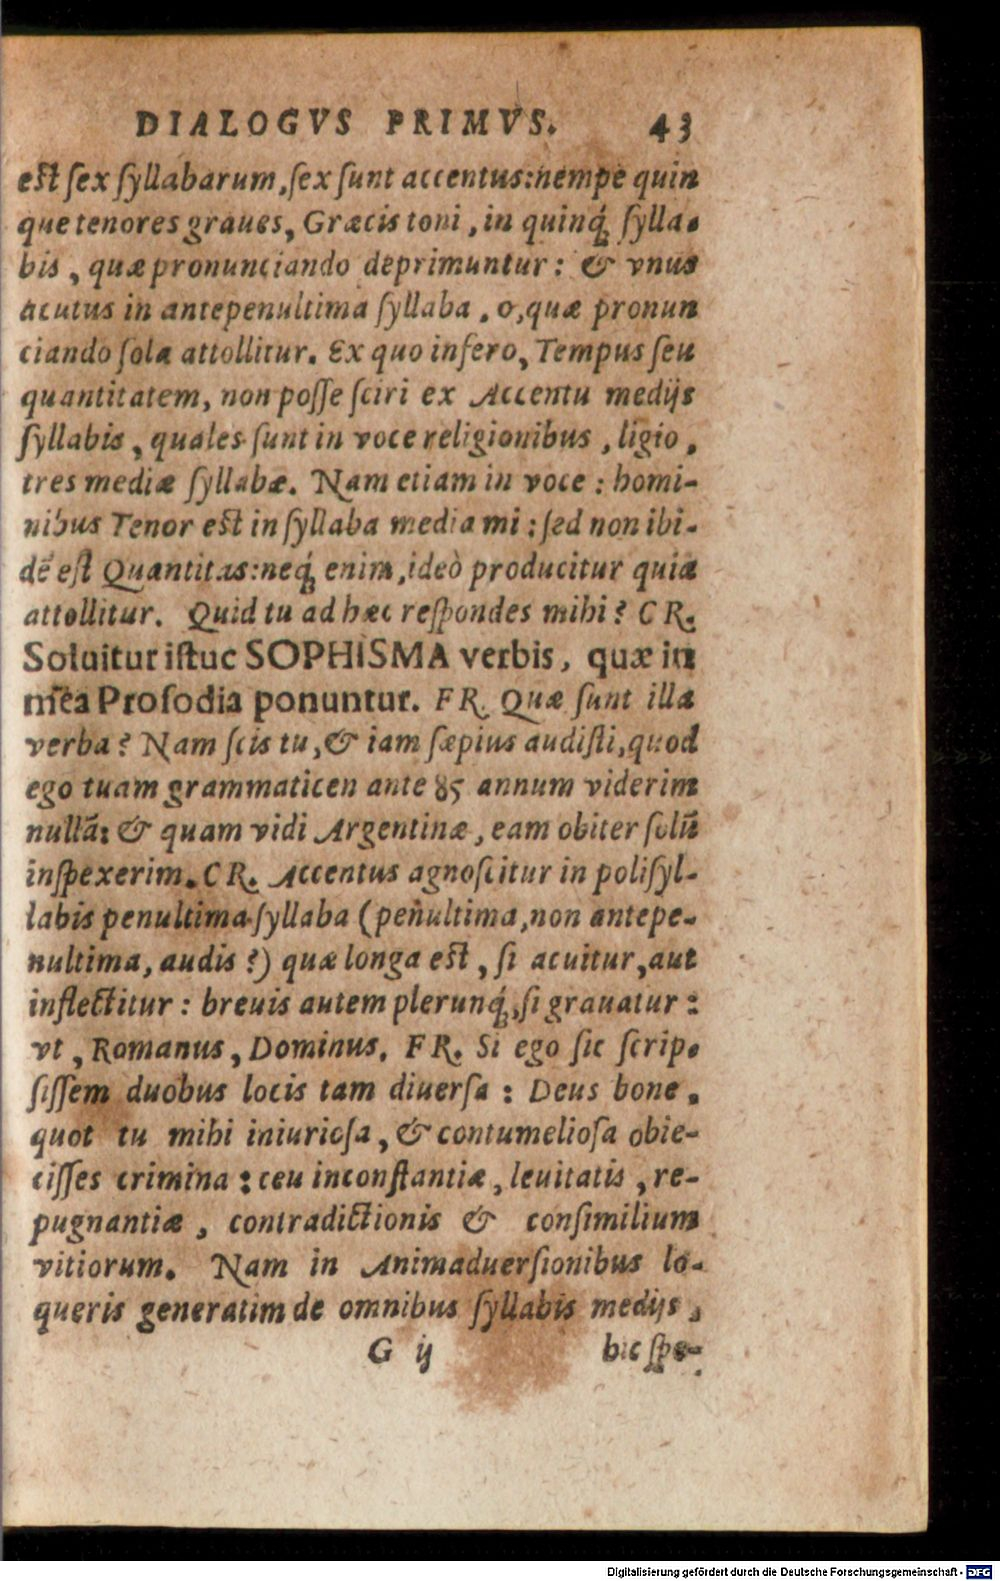 DIALOGVS PRIMVS. 43
est ſex ſyllabarum, ſex ſunt accentus: nempe quin
que tenores graues, Græcis toni, in quinq́; ſylla-
bis, quæ pronunciando deprimuntur: & vnus
acutus in antepenultima ſyllaba, o, quæ pronun
ciando ſola attollitur. Ex quo infero, Tempus ſeu
quantitatem, non poſſe ſciri ex Accentu medijs
ſyllabis, quales ſunt in voce religionibus, ligio,
tres mediæ ſyllabæ. Nam etiam in voce: homi-
nibus Tenor est in ſyllaba media mi: ſed non ibi-
dē eſt Quantitas: neq́; enim, ideò producitur quia
attollitur. Quid tu ad hæc reſpondes mihi? CR.
Soluitur iſtuc SOPHISMA verbis, quæ in
mea Proſodia ponuntur. FR. Quæ ſunt illa
verba? Nam ſcis tu, & iam ſæpius audiſti, quod
ego tuam grammaticen ante 85 annum viderim
nullā: & quam vidi Argentinæ, eam obiter ſolū
inſpexerim. CR. Accentus agnoſcitur in poliſyl-
labis penultima ſyllaba (penultima, non antepe-
nultima, audis?) quæ longa est, ſi acuitur, aut
inflectitur: breuis autem plerunq́;, ſi grauatur:
vt, Romanus, Dominus. FR. Si ego ſic ſcrip-
ſiſſem duobus locis tam diuerſa: Deus bone,
quot tu mihi iniurioſa, & contumelioſa obie-
ciſſes crimina: ceu inconſtantiæ, leuitatis, re-
pugnantiæ, contradictionis & conſimilium
vitiorum. Nam in Animaduerſionibus lo-
queris generatim de omnibus ſyllabis medijs,
G ij hic ſpe-
Digitalisierung gefördert durch die Deutsche Forschungsgemeinschaft - DFG